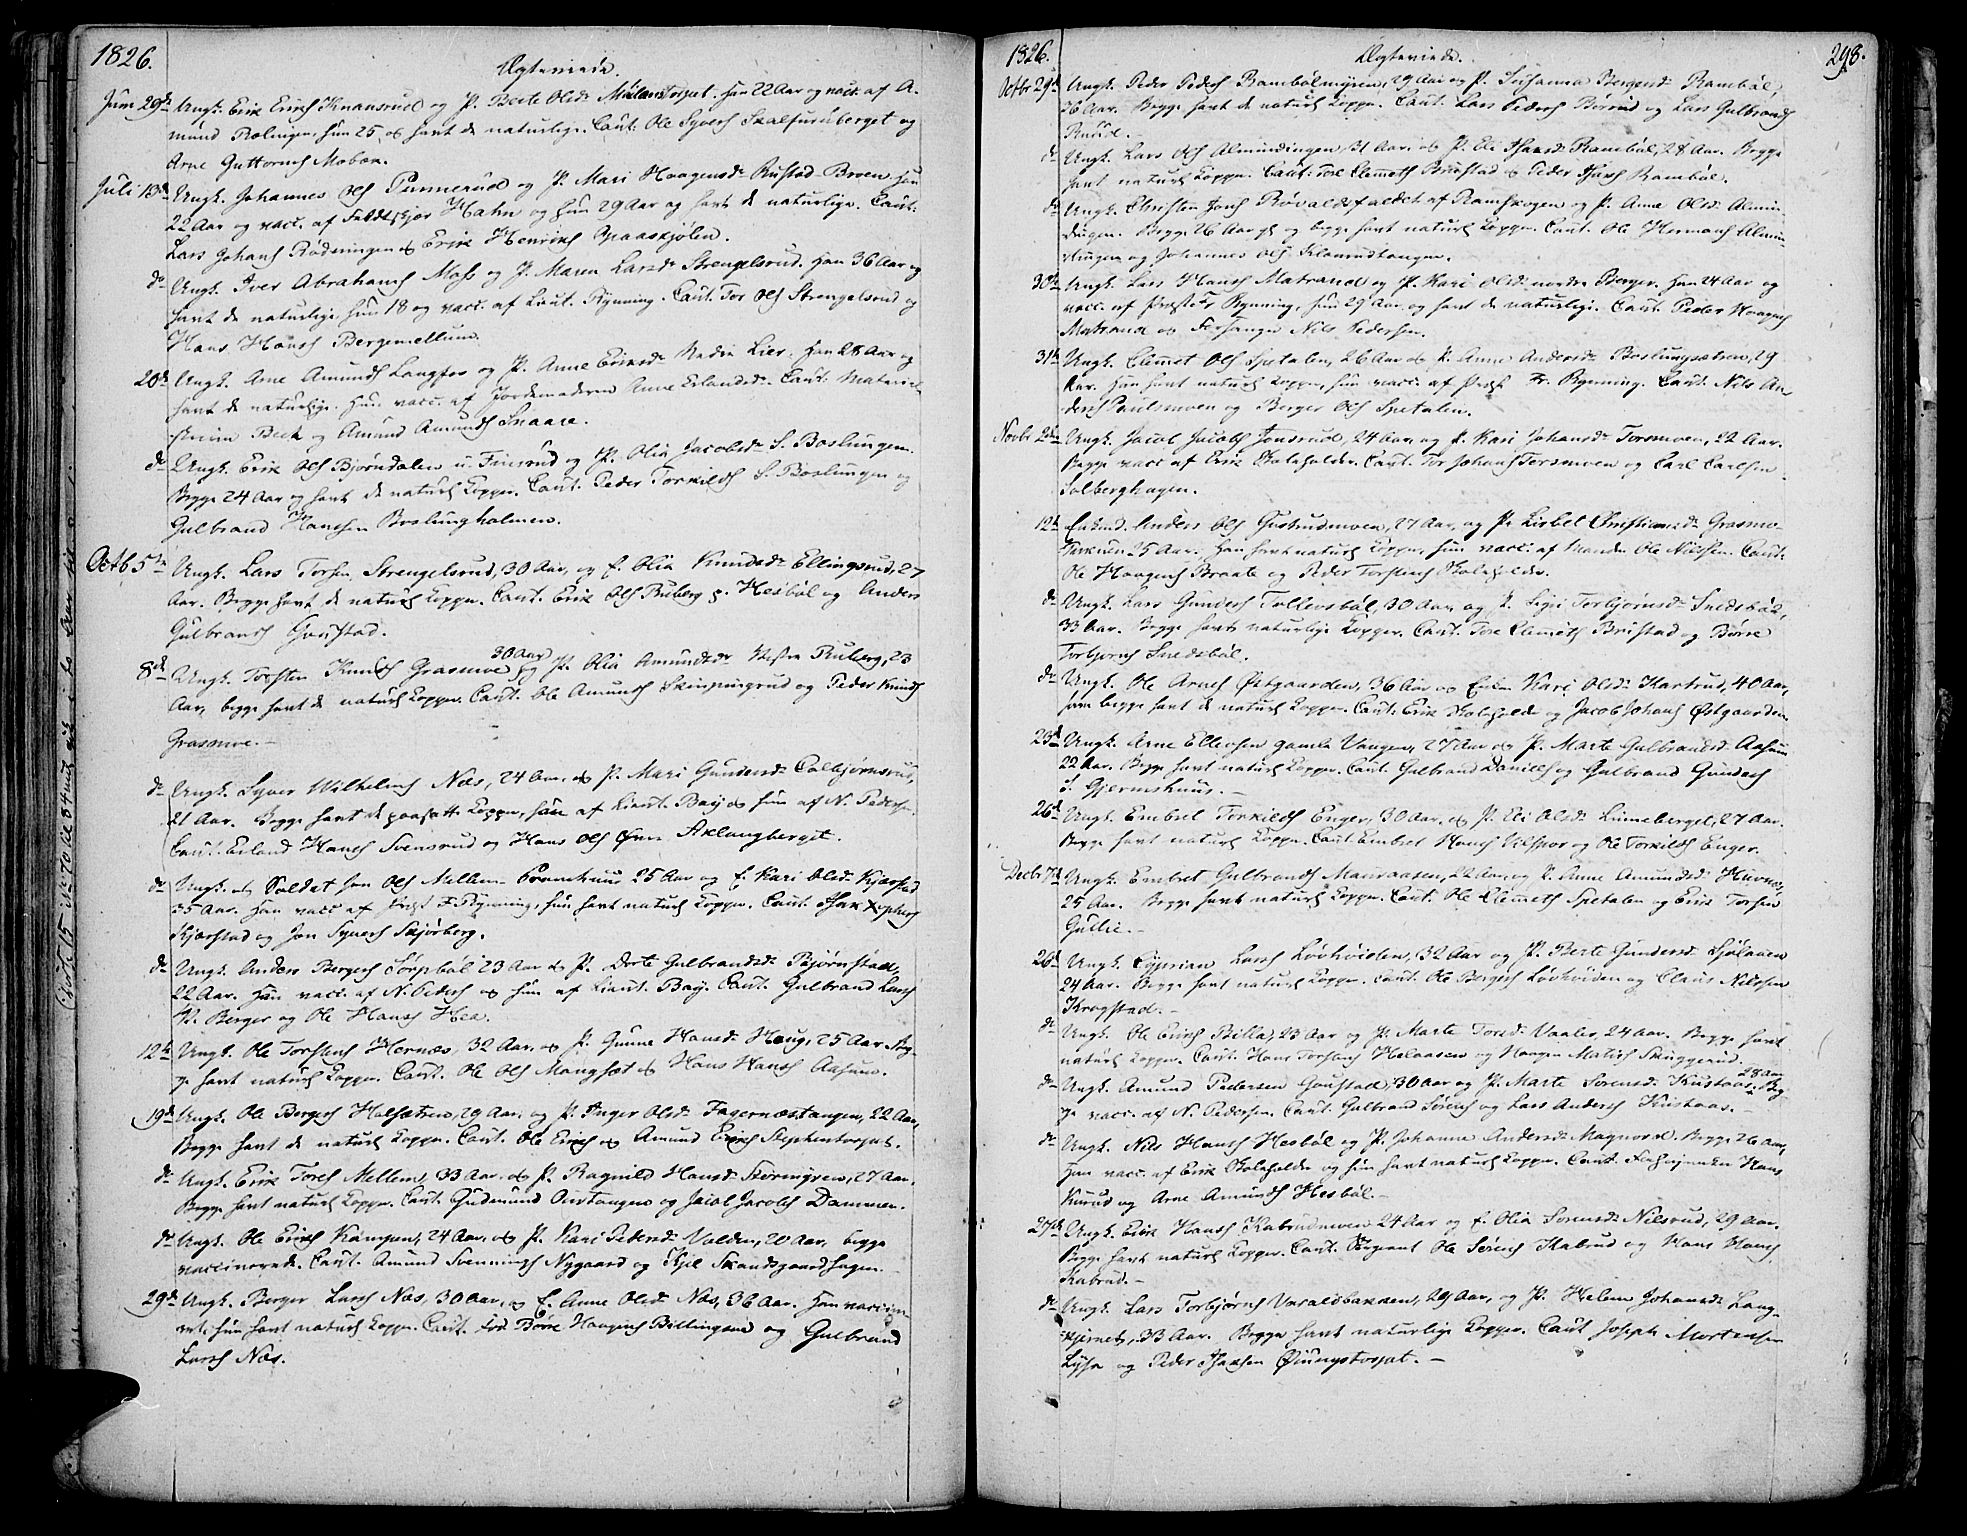 1826.
Ægteviede.
Juni 29de Ungk. Erik Erichs Knaasrud og P. Berte Olsdr. Han 22 Aar og vacc. af A-
mund Rælingen, hun 25 og havt de naturlige. Caut. Ole Syvers Skalfuruberget og
Arne Guttorms Mobæk.
Juli 13de Ungk. Johannes Ols Punnerud og P. Mari Haagensdr. Rustad Broen han
22 Aar og vacc. af Feldtskjær Hahn og hun 29 Aar og havt de naturlige. Caut.
Lars Johans Rødningen og Erik Henriks Spaaskjølen.
do Ungk. Iver Abrahams Moss og P. Maren Larsdr. Strengelsrud. Han 36 Aar og
havt de naturlige, hun 18 og vacc. af Lieut. Rynning. Caut. Tor Ols Strengelsrud og
Hans Hans Bergemellum.
20de Ungk. Arne Amunds Langfos og P. Anne Eriksdr. Nedre Lier. Han 28 Aar og
havt de naturlige. Hun vacc. af Jordemoderen Anne Erlandsdr. Caut. Materiel-
skriver Beck og Amund Amunds Snaare.
do Ungk. Erik Ols Bjørndalen u. Finsrud og P. Olia Jacobsdr. S. Boslungen.
Begge 24 Aar og havt de naturl. Kopper. Caut. Peder Torkilds S. Boslungen og
Gulbrand Hansen Boslungholmen.
Octb 5te Ungk. Lars Torsen Strengelsrud, 30 Aar, og E. Olia Knudsdr. Ellingsrud, 27
Aar. Begge havt de naturl. Kopper. Caut. Erik Ols Ruberg p. Hesbøl og Anders
Gulbrands Goustad.
8de Ungk. Torsten Knuds Grasmoe 30 Aar og P. Olia Amundsdr. Vestre Ruberg, 23
Aar, begge havt de naturl. Kopper. Caut. Ole Amunds Skinpungrud og Peder Knuds
Grasmoe.
do Ungk. Syver Wilhelms Næs, 24 Aar, og P. Mari Gundersdr. Colbjørnsrud,
21 Aar. Begge havt de paasatte Kopper, han af Lieut. Bay og hun af N. Peders.
Caut. Erland Hans Svensrud og Hans Ols Øvre Aklangberget.
do Ungk. og Soldat Jon Ols Mellem 25 Aar og E. Kari Olsdr. Kjærstad
35 Aar. Han vacc. af Præst F. Rynning, hun havt naturl. Kopper. Caut. Isak
Kjærstad og Jon Syvers Skjørberg.
do Ungk. Anders Bergers Sørpebøl 23 Aar og P. Dorte Gulbrandsdr. Bjørnstad,
22 Aar. Han vacc. af N. Peders og hun af Lieut. Bay. Caut. Gulbrand Lars
N. Berger og Ole Hans Hea.
12te Ungk. Ole Torstens Hernæs, 32 Aar, og P. Gunne Hansdr. Haug, 25 Aar. Beg-
ge havt naturl. Kopper. Caut. Ole Ols Mangset og Hans Hans Aasum.
19de Ungk. Ole Bergers Holsætren, 29 Aar, og P. Inger Olsdr. Fagernæstangen, 22 Aar,
Begge havt de naturl. Kopper. Caut. Ole Erichs og Amund Erichs Stephenstorpet.
do Ungk. Erik Tores Mellem, 33 Aar, og P. Ragnild Hansdr. Størmyren, 27 Aar.
Begge havt naturl. Kopper. Caut. Gudmund Overtangen og Jacob Jacobs Dammen.
do Ungk. Ole Erichs Kampen, 24 Aar, og P. Kari Pedersdr. Volden, 20 Aar, begge
vaccinerede. Caut. Amund Svennings Nygaard og Kjel Skandsgaardhagen.
29de Ungk. Berger Lars Næs, 30 Aar, og E. Anne Olsdr. Næs, 36 Aar. Han vaccine-
ret, hun havt naturl. Kopper. Caut. Børre Haagens Billingene og Gulbrand
Lars Næs.
1826.
Ægteviede.
298.
Octbr 29de Ungk. Peder Peders Rambølmyren, 29 Aar og P. Susanna Bergersdr. Rambøl,
36 Aar. Begge havt de naturl. Kopper. Caut. Lars Peders Børrud og Lars Gulbrands
Rusud.
do Ungk. Lars Ols Almindingen 31 Aar og P. Eli Isaksdr. Rambøl, 28 Aar. Begge
havt naturl. Kopper. Caut. Tore Clemets Brustad og Peder Isaks Rambøl.
do Ungk. Christen Jons Røvaldsfaldet af Ramskogen og P. Anne Olsdr. Almin-
dingen. Begge 26 Aar gl. og begge havt naturl. Kopper. Caut. Ole Hermans Almin-
dingen og Johannes Ols Klanrudtangen.
30te Ungk. Lars Hans Matrand og P. Kari Olsdr. nordre Berger. Han 24 Aar og
vacc. af Præst Fr. Rynning, hun 29 Aar og havt de naturlige. Caut. Peder Haagens
Matrand og Forsanger Nils Pedersen.
31te Ungk. Clemet Ols Spetalen, 26 Aar og P. Anne Andersdr. Boslungsætren, 29
Aar. Han havt naturl. Kopper, hun vacc. af Præst Fr. Rynning. Caut. Nils An-
ders Paulsmoen og Berger Ols Spetalen.
Novbr 2den Ungk. Jacob Jacobs Jonsrud, 24 Aar, og P. Kari Johansdr. Torsmoen, 22 Aar.
Begge vacc. af Erik Skoleholder. Caut. Tor Johans Torsmoen og Carl Carlsen
Solberghagen.
12te Enkmd. Anders Ols Gustrudmoen, 27 Aar, og P. Lisbet Christiansdr. Grasmo-
25 Aar. Han havt naturl. Kopper, hun vacc. af Manden Ole Nilssen. Caut.
Ole Haagens Braate og Peder Torstens Skoleholder.
do Ungk. Lars Gunders Tollevsbøl, 30 Aar, og P. Sigri Torbjørnsdr. Snedsbøl,
33 Aar. Begge havt naturlige Kopper. Caut. Tore Clemets Brustad og Børre
Torbjørns Snedsbøl.
do Ungk. Ole Arnes Østgaarden, 36 Aar og Enke Kari Olsdr. Kartrud, 40 Aar,
som begge havt de naturl. Kopper. Caut. Erik Skoleholder og Jacob Johans Østgaarden.
23de Ungk. Arne Ellevsen gamle Vangen, 27 Aar og P. Marte Gulbrandsdr. Aasum
22 Aar. Begge havt naturl. Kopper. Caut. Gulbrand Daniels og Gulbrand Gunders
S. Gjermshuus.
26de Ungk. Embret Torkilds Enger, 30 Aar, og P. Eli Olsdr. Linneberget, 27 Aar.
Begge havt naturl. Kopper. Caut. Embret Hans Vilspor og Ole Torkilds Enger.
Decbr 7de Ungk. Embret Gulbrands Mauraasen, 22 Aar, og P. Anne Amundsdr. Huvnæs,
25 Aar. Begge havt naturl. Kopper. Caut. Ole Clemets Spetalen og Erik Torsen
Gullie.
26de Ungk. Cyprian Lars Løvhøiden, 32 Aar og P. Berte Gundersdr. Sjølauen
24 Aar. Begge havt naturl. Kopper. Caut. Ole Bergers Løvhøiden og Claus Nilssen
Krogstad.
do Ungk. Ole Erichs Billa, 23 Aar og P. Marte Toresdr. Vaaler, 24 Aar. Begge havt
naturl. Kopper. Caut. Hans Torstens Helaasen og Haagen Matis Skuggerud.
do Ungk. Amund Pedersen Goustad, 30 Aar og P. Marte Sørensdr. Kustaas 28 Aar. Beg-
ge vacc. af N. Pedersen. Caut. Gulbrand Sørens og Lars Anders Kustaas.
do Ungk. Nils Hans Hesbøl og P. Johanne Andersdr. Magnord. Begge 26 Aar,
han vacc. af Erik Skoleholder og hun havt naturl. Kopper. Caut. Hans
Kurud og Arne Amunds Hesbøl.
27de Ungk. Erik Hans Kabrudmoen 24 Aar og E. Olia Sørensdr. Nilsrud, 29 Aar.
Begge havt naturl. Kopper. Caut. Sergeant Ole Sørens Kabrud og Hans Hans
Kabrud.
do Ungk. Lars Torbjørns Varaldsbakken, 29 Aar, og P. Helene Johansdr. Lang-
kjernet, 33 Aar. Begge havt naturlige Kopper. Caut. Joseph Mortensen
Lyse og Peder Isaksen Øiungstorpet.